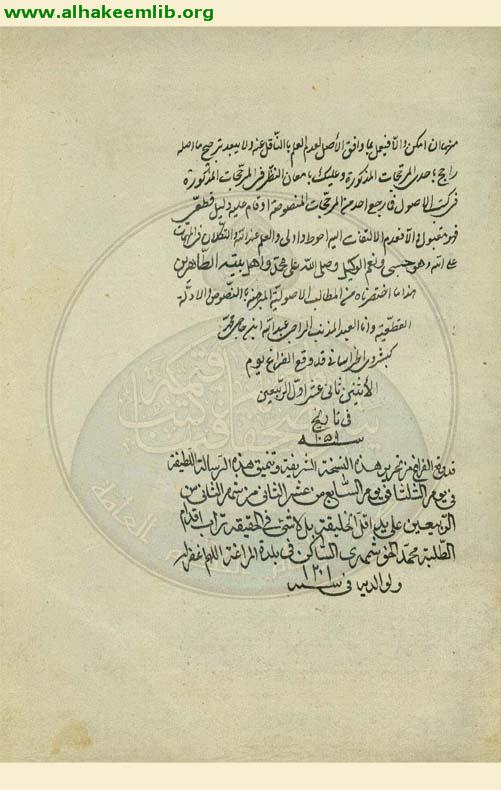 www.alhakeemlib.org
منهما ان امكن والا فيعمل بما وافق الأصل لعدم العلم بالناقل عنه ولا يبعد ترجيح ما اصله
راجح باحدى المرجحات المذكورة وعليك بامعان النظر في المرجحات المذكورة
في كتب الاصول فما رجع الى احد من المرجحات المنصوصة او قام عليه دليل قطعي
فهو مقبول والا فعدم الالتفات اليه احوط واولى والعلم عند الله والتكلان في المهمات
على الله وهو حسبي ونعم الوكيل وصلى الله على محمد واهل بيته الطاهرين
هذا ما اختصرناه من المطالب الاصولية المبرهنة بالنصوص والادلة
القطعية وانا العبد المذنب الراجي عبد الله ابن حاجي محمد
الخراساني قد وقع الفراغ يوم
الأثنين ثاني عشر اول الربيعين
في تاريخ
سنة ١٠٥٩
قد وقع الفراغ من تحرير هذه النسخة الشريفة وتنميق هذه الرسالة اللطيفة
في يوم الثلثا في يوم السابع من عشر الثاني من شهر الثاني من
الربيعين على يد اقل الخليقة بل لاشئ في الحقيقة تراب اقدام
الطلبة محمد الساكن في بلدة المراغة اللهم اغفر له
ولوالديه في سنة ١٢٠١